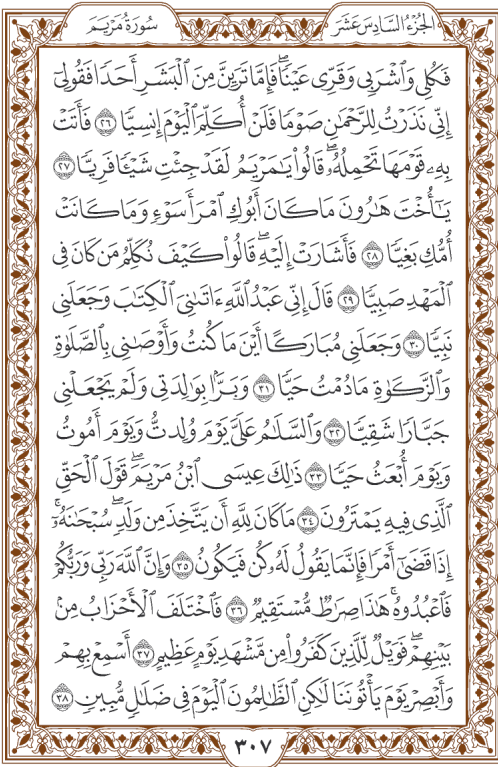 الجُزْءُ السَّادِسَ عَشَرَ
سُورَةُ مَرْيَمَ
فَكُلِي وَٱشْرَبِي وَقَرِّي عَيْنٗاۖ فَإِمَّا تَرَيِنَّ مِنَ ٱلْبَشَرِ أَحَدٗا فَقُولِيٓ
إِنِّي نَذَرْتُ لِلرَّحْمَٰنِ صَوْمٗا فَلَنْ أُكَلِّمَ ٱلْيَوْمَ إِنسِيّٗا ٢٦ فَأَتَتْ
بِهِۦ قَوْمَهَا تَحْمِلُهُۥۖ قَالُواْ يَٰمَرْيَمُ لَقَدْ جِئْتِ شَيْـٔٗا فَرِيّٗا ٢٧
يَٰٓأُخْتَ هَٰرُونَ مَا كَانَ أَبُوكِ ٱمْرَأَ سَوْءٖ وَمَا كَانَتْ
أُمُّكِ بَغِيّٗا ٢٨ فَأَشَارَتْ إِلَيْهِۖ قَالُواْ كَيْفَ نُكَلِّمُ مَن كَانَ فِي
ٱلْمَهْدِ صَبِيّٗا ٢٩ قَالَ إِنِّي عَبْدُ ٱللَّهِ ءَاتَىٰنِيَ ٱلْكِتَٰبَ وَجَعَلَنِي
نَبِيّٗا ٣٠ وَجَعَلَنِي مُبَارَكًا أَيْنَ مَا كُنتُ وَأَوْصَٰنِي بِٱلصَّلَوٰةِ
وَٱلزَّكَوٰةِ مَا دُمْتُ حَيّٗا ٣١ وَبَرَّۢا بِوَٰلِدَتِي وَلَمْ يَجْعَلْنِي
جَبَّارٗا شَقِيّٗا ٣٢ وَٱلسَّلَٰمُ عَلَيَّ يَوْمَ وُلِدتُّ وَيَوْمَ أَمُوتُ
وَيَوْمَ أُبْعَثُ حَيّٗا ٣٣ ذَٰلِكَ عِيسَى ٱبْنُ مَرْيَمَۖ قَوْلَ ٱلْحَقِّ
ٱلَّذِي فِيهِ يَمْتَرُونَ ٣٤ مَا كَانَ لِلَّهِ أَن يَتَّخِذَ مِن وَلَدٖۖ سُبْحَٰنَهُۥٓۚ
إِذَا قَضَىٰٓ أَمْرٗا فَإِنَّمَا يَقُولُ لَهُۥ كُن فَيَكُونُ ٣٥ وَإِنَّ ٱللَّهَ رَبِّي وَرَبُّكُمْ
فَٱعْبُدُوهُۚ هَٰذَا صِرَٰطٞ مُّسْتَقِيمٞ ٣٦ فَٱخْتَلَفَ ٱلْأَحْزَابُ مِنۢ
بَيْنِهِمْۖ فَوَيْلٞ لِّلَّذِينَ كَفَرُواْ مِن مَّشْهَدِ يَوْمٍ عَظِيمٍ ٣٧ أَسْمِعْ بِهِمْ
وَأَبْصِرْ يَوْمَ يَأْتُونَنَا لَٰكِنِ ٱلظَّٰلِمُونَ ٱلْيَوْمَ فِي ضَلَٰلٖ مُّبِينٖ ٣٨
٣٠٧